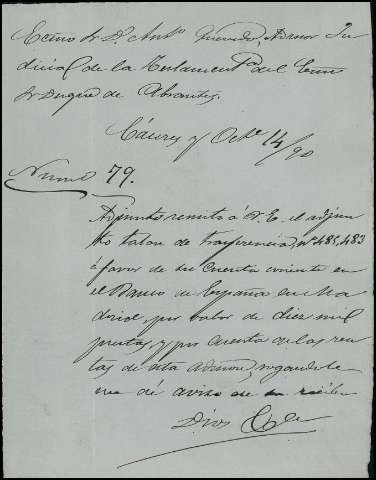 Excmo Sr D. Anto Quevedo, Admor Ju
dicial de la Testamenta del Excmo
Sr Duque de Abrantes.
Cáceres y Octe 14/90
Numo 79.
Adjunto remito á V. E. el adjun
to talon de trasferencia, nº 485,483
á favor de su cuenta corriente en
el Banco de España en Ma
drid, por valor de diez mil
pesetas, y por cuenta de las ren
tas de esta Admon, rogandole
me dé aviso de su recibo
Dios &a